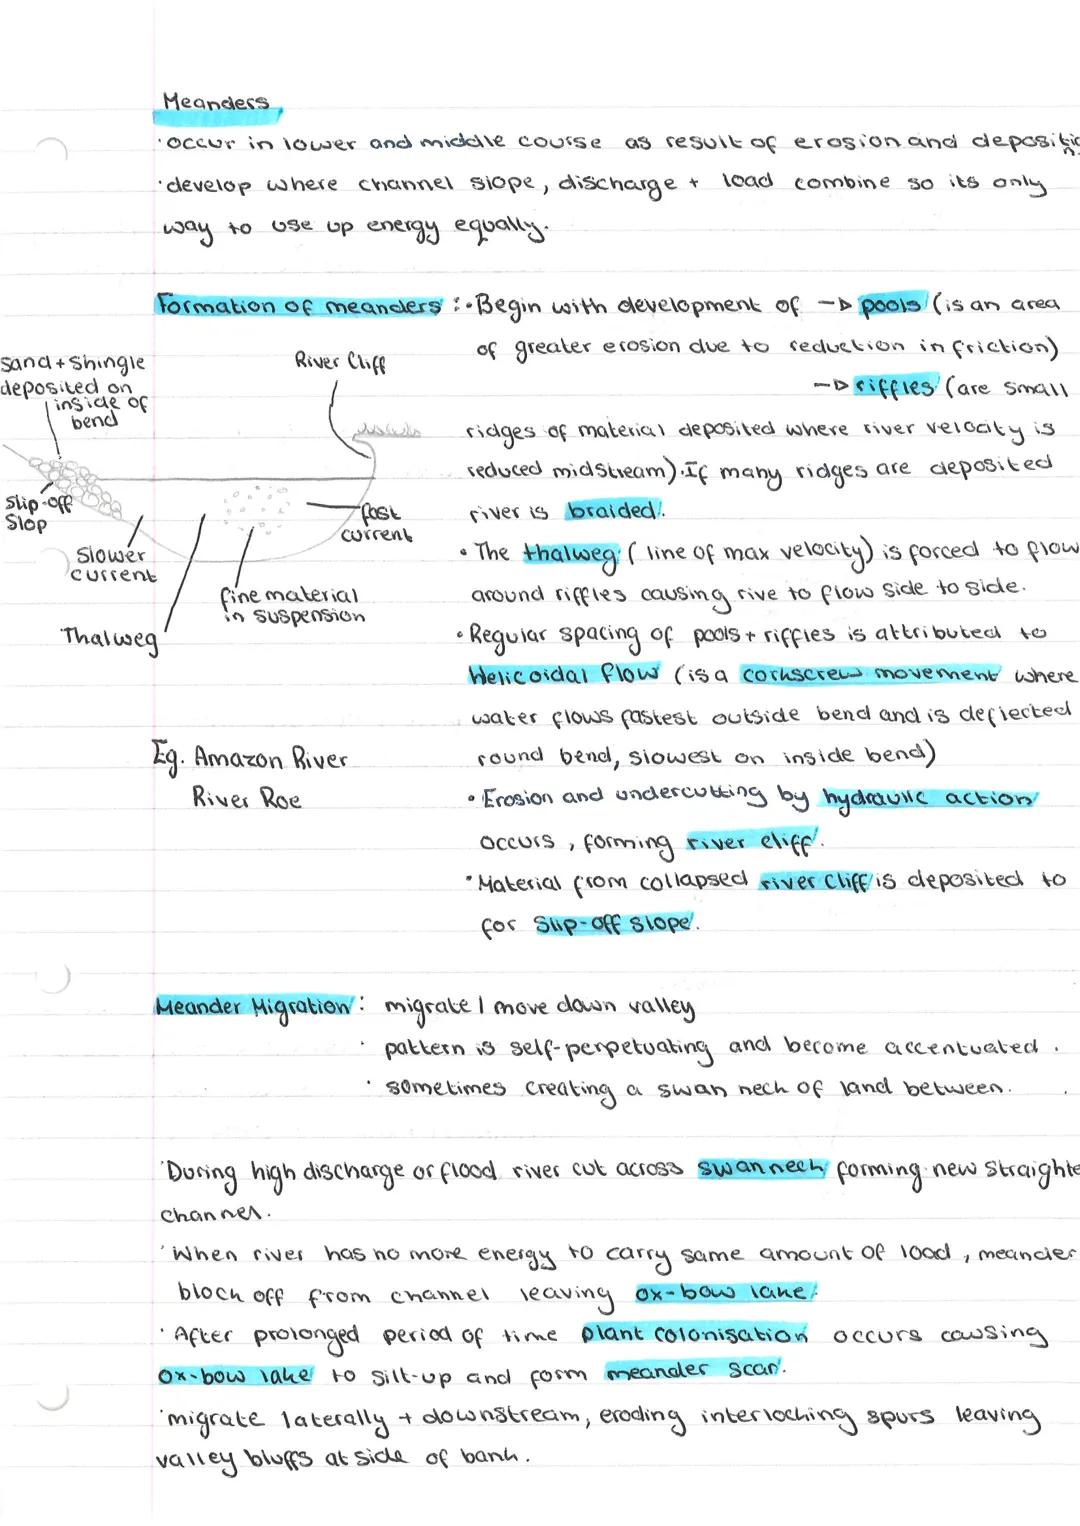 Meanders
·occur in lower and middle course as result of erosion and deposition
·develop where channel slope, discharge + load combine so its only
way to use up energy equally.
Formation of meanders :·Begin with development of → pools (is an area
of greater erosion due to reduction in friction)
→ riffles (are small
ridges of material deposited where river velocity is
reduced midstream). If many ridges are deposited
river is braided.
• The thalweg (line of max velocity) is forced to flow
around riffles causing rive to flow side to side.
• Regular spacing of pools + riffles is attributed to
Helicoidal flow (is a corkscrew movement where
water flows fastest outside bend and is deflected
round bend, slowest on inside bend)
• Erosion and undercutting by hydraulic action
occurs, forming river cliff.
• Material from collapsed river cliff is deposited to
for slip-off slope.
Sand + Shingle
deposited on
inside of
bend
River Cliff
Slip-off
Slop
fast
current
Slower
current
fine material
in suspension
Thalweg
Eg. Amazon River
River Roe
Meander Migration: migrate / move down valley
· pattern is self-perpetuating and become accentuated.
· sometimes creating a swan neck of land between.
·During high discharge or flood river cut across swan neck forming new straighte
channel.
·When river has no more energy to carry same amount of load, meander
block off from channel leaving ox-bow lake.
·After prolonged period of time plant colonisation occurs causing
ox-bow lake to silt-up and form meander scar.
·migrate laterally + downstream, eroding interlocking spurs leaving
valley bluffs at side of bank.